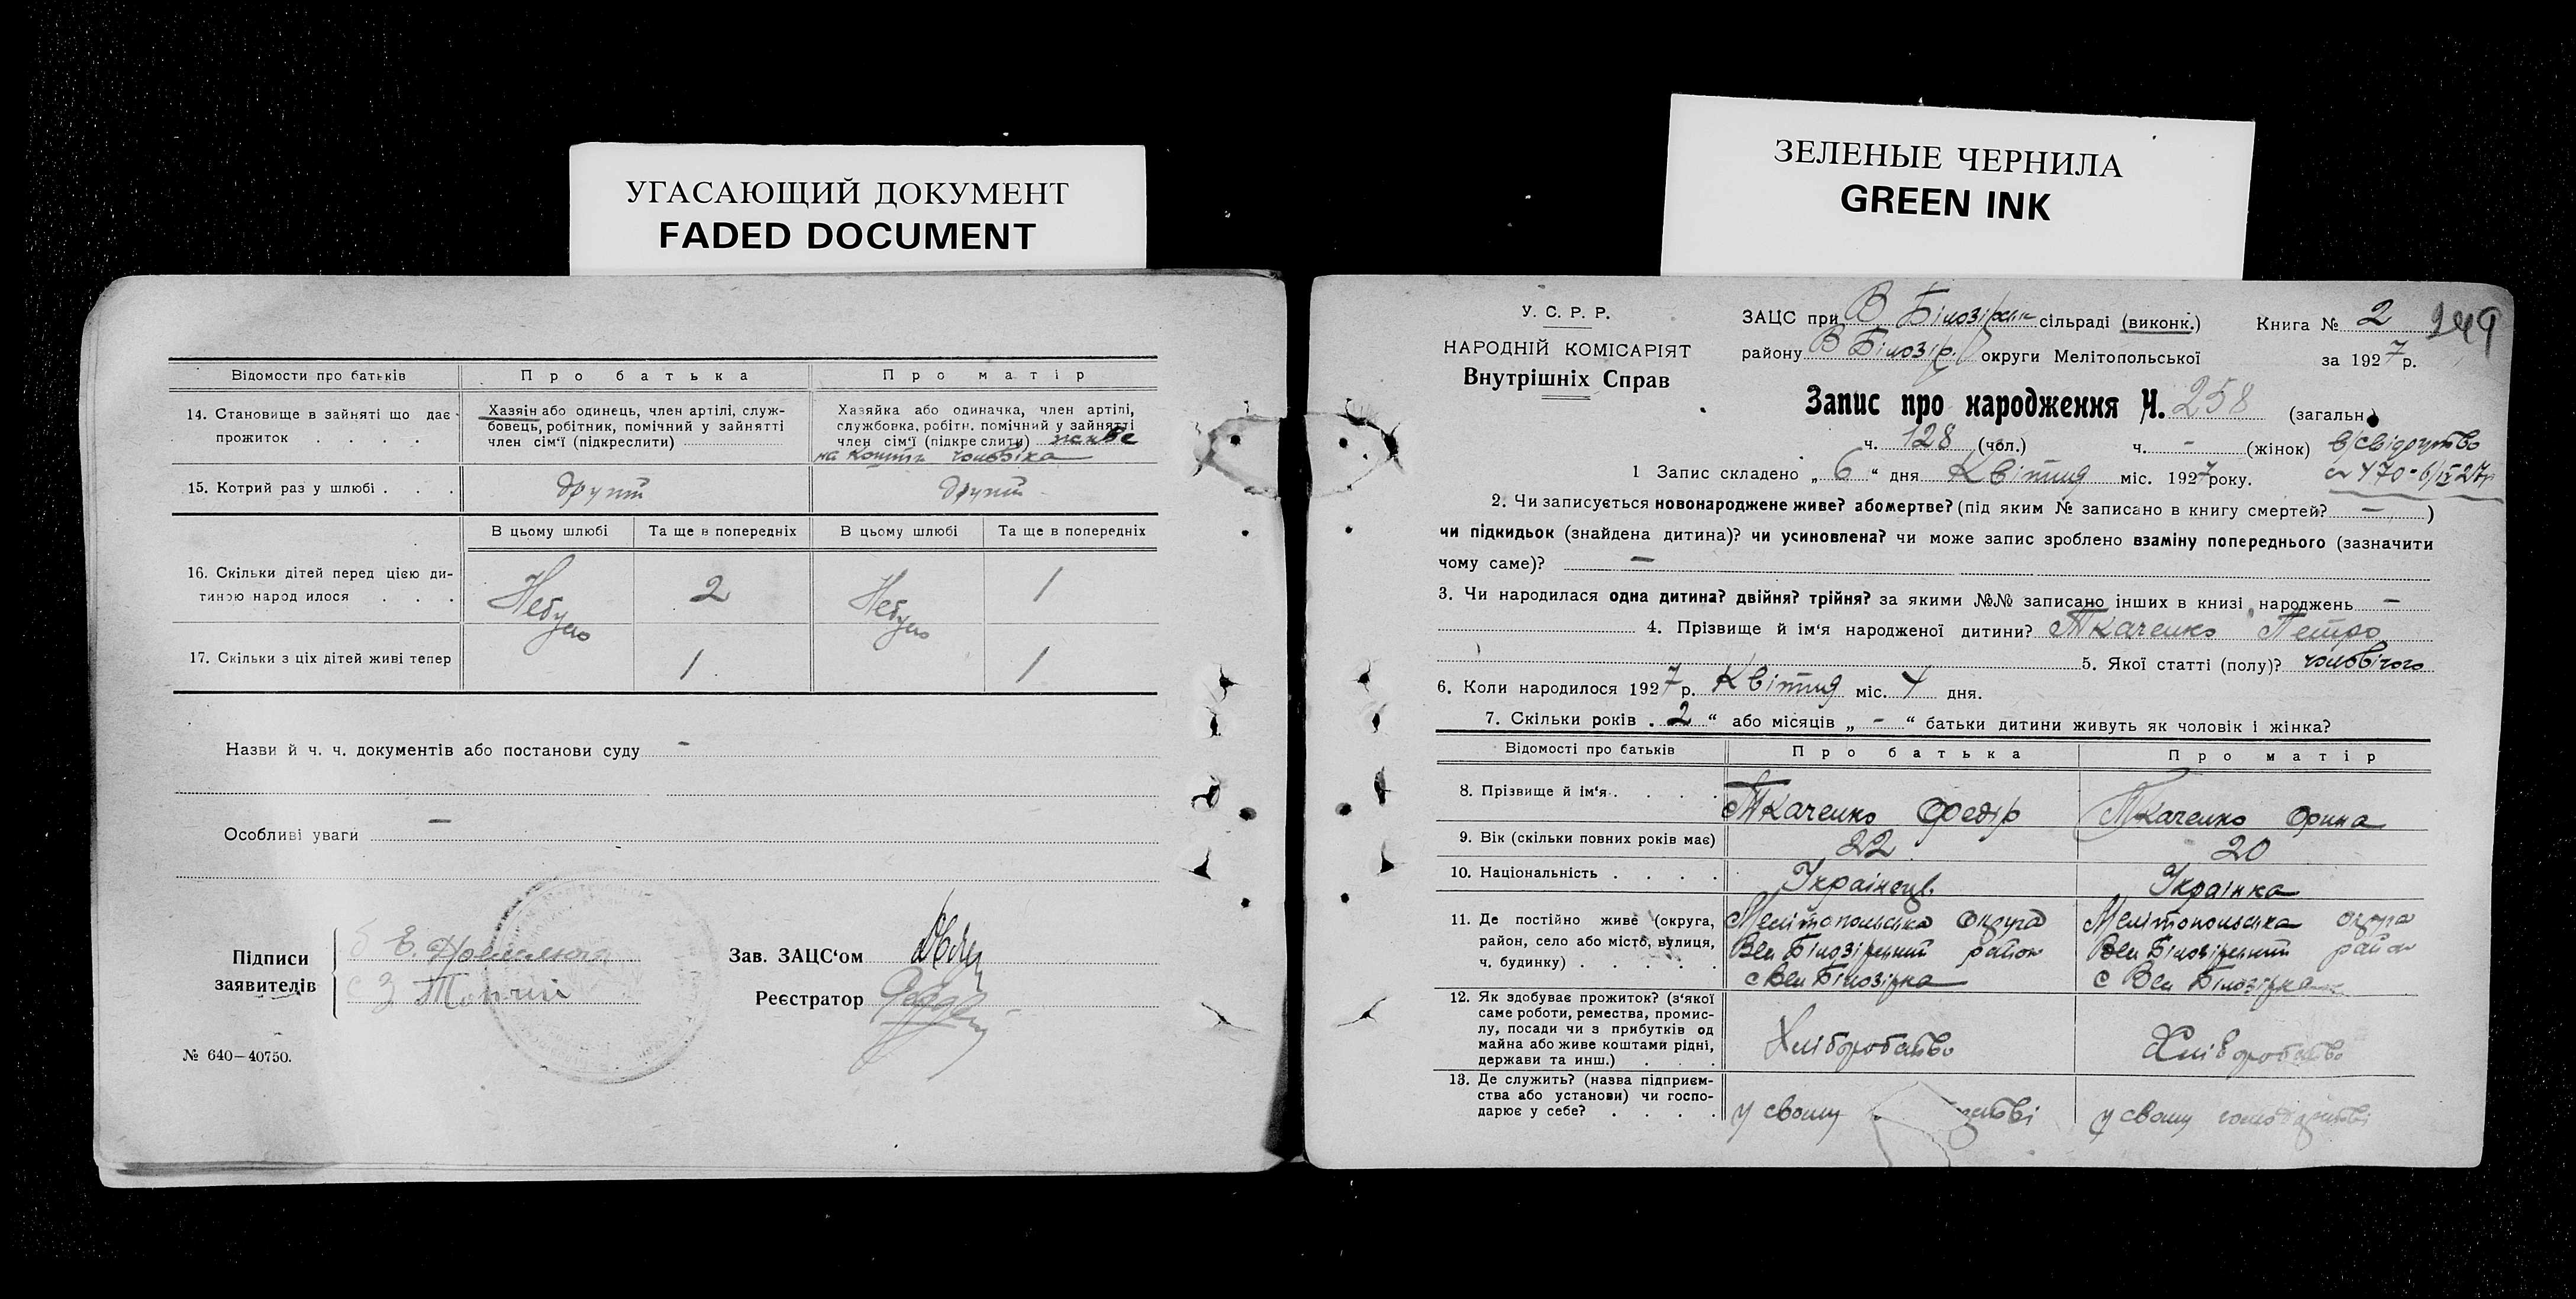 УГАСАЮЩИЙ ДОКУМЕНТ
FADED DOCUMENT
Відомости про батьків
Про батька
Про матір
14. Становище в зайняті що дає прожиток . . . .
Хазяін або одинець, член артілі, служ-
бовець, робітник, помічний у зайнятті
член сім'ї (підкреслити)
Хазяйка або одиначка, член артілі,
службовка, робітн. помічний у зайнятті
член сім'ї (підкреслити) живе
на кошти чоловіка
15. Котрий раз у шлюбі . . .
другий
другий
В цьому шлюбі
Та ще в попередніх
В цьому шлюбі
Та ще в попередніх
16. Скільки дітей перед цією ди-
тиною народилося . . .
Небуло
2
Небуло
1
17. Скільки з ціх дітей живі тепер
1
1
Назви й ч. ч. документів або постанови суду -
Особливі уваги —
Підписи
заявителів
Зав. ЗАЦС'ом
Реєстратор
№ 640—40750.
ЗЕЛЕНЫЕ ЧЕРНИЛА
GREEN INK
У. С. Р. Р.
НАРОДНІЙ КОМІСАРІЯТ
Внутрішніх Справ
ЗАЦС при В Білозірськ сільраді (виконк.)
Книга № 2
249
району В Білозір. округи Мелітопольської
за 1927 р.
Запис про народження Ч. 258 (загальн.)
ч. 128 (чол.) ч. - (жінок) в/свідоцтво
1 Запис складено „ 6 “ дня Квітня міс. 1927 року.
№ 470 - 6/IV 27р
2. Чи записується новонароджене живе? або мертве? (під яким № записано в книгу смертей? — )
чи підкидьок (знайдена дитина)? чи усиновлена? чи може запис зроблено взаміну попереднього (зазначити
чому саме)? —
3. Чи народилася одна дитина? двійня? трійня? за якими №№ записано інших в книзі народжень —
4. Прізвище й ім'я народженої дитини? Ткаченко Петро
5. Якої статті (полу)? чоловічого
6. Коли народилося 1927 р. Квітня міс. 4 дня.
7. Скільки років „ 2 “ або місяців „ - “ батьки дитини живуть як чоловік і жінка?
Відомості про батьків
Про батька
Про матір
8. Прізвище й ім'я . . . .
Ткаченко Федір
Ткаченко Орина
9. Вік (скільки повних років має)
22
20
10. Національність . . . .
Українець
Українка
11. Де постійно живе (округа,
район, село або місто, вулиця,
ч. будинку) . . . . .
Мелітопольська округа
Вел Білозірський район
с Вел Білозірка
Мелітопольська округа
Вел Білозірський район
с Вел Білозірка
12. Як здобуває прожиток? (з'якої
саме роботи, ремества, промис-
лу, посади чи з прибутків од
майна або живе коштами рідні,
держави та инш.) . . .
Хліборобство
Хліборобство
13. Де служить? (назва підприєм-
ства або установи) чи госпо-
дарює у себе? . . . .
у свому
у свому господарстві